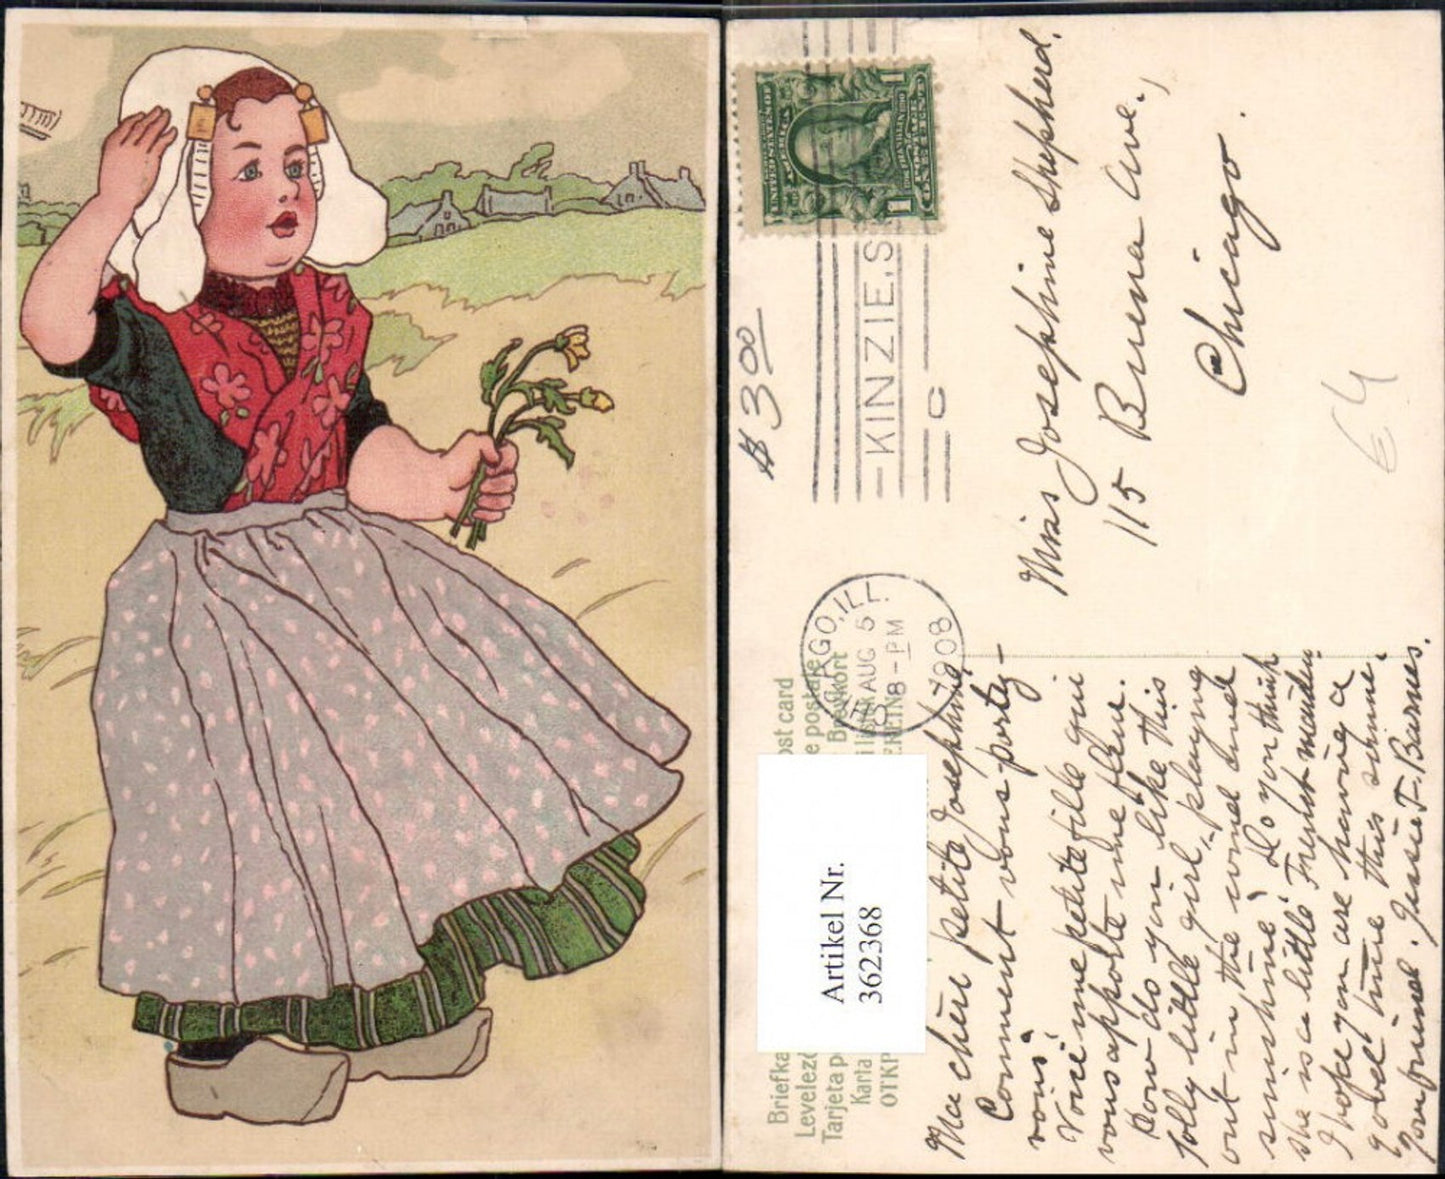 $ 3.00
UNITED STATES OF AMERICA
1 1
ONE CENT
KINZIE, S
C
CHICAGO, ILL.
AUG 5
8-PM
1908
Miss Josephine Shepherd.
115 Buena Ave.,
Chicago.
ost card
e postale
Brevkort
Briefka
Levelez
Tarjeta p
Karta
OTKP
Artikel Nr.
362368
Ma chère petite Josephine
Comment vous-portez-
vous?
Voici une petite fille qui
vous apporte une fleur.
How do you like this
jolly little girl, playing
out in the wind and
sunshine? Do you think
she is a little French maiden
I hope you are having a
good time this summer.
Your friend. Jessie F. Barnes.